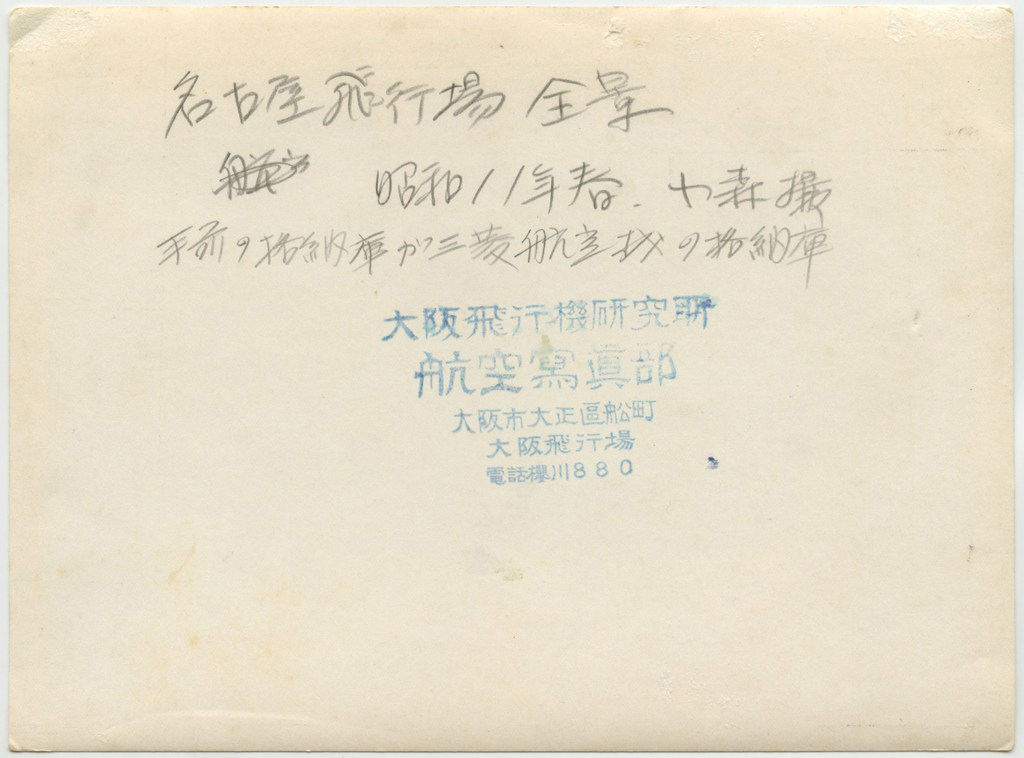 名古屋飛行場 全景
昭和11年春. 森撮
手前の格納庫が三菱航空機の格納庫
大阪飛行機研究所
航空寫眞部
大阪市大正區船町
大阪飛行場
電話櫻川880